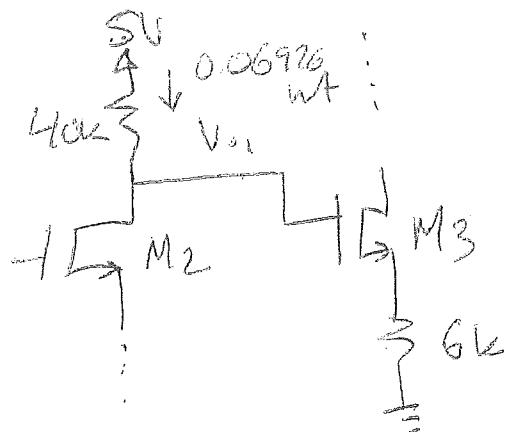 5V
0.06926
40k
Vo1
M2
M3
6k